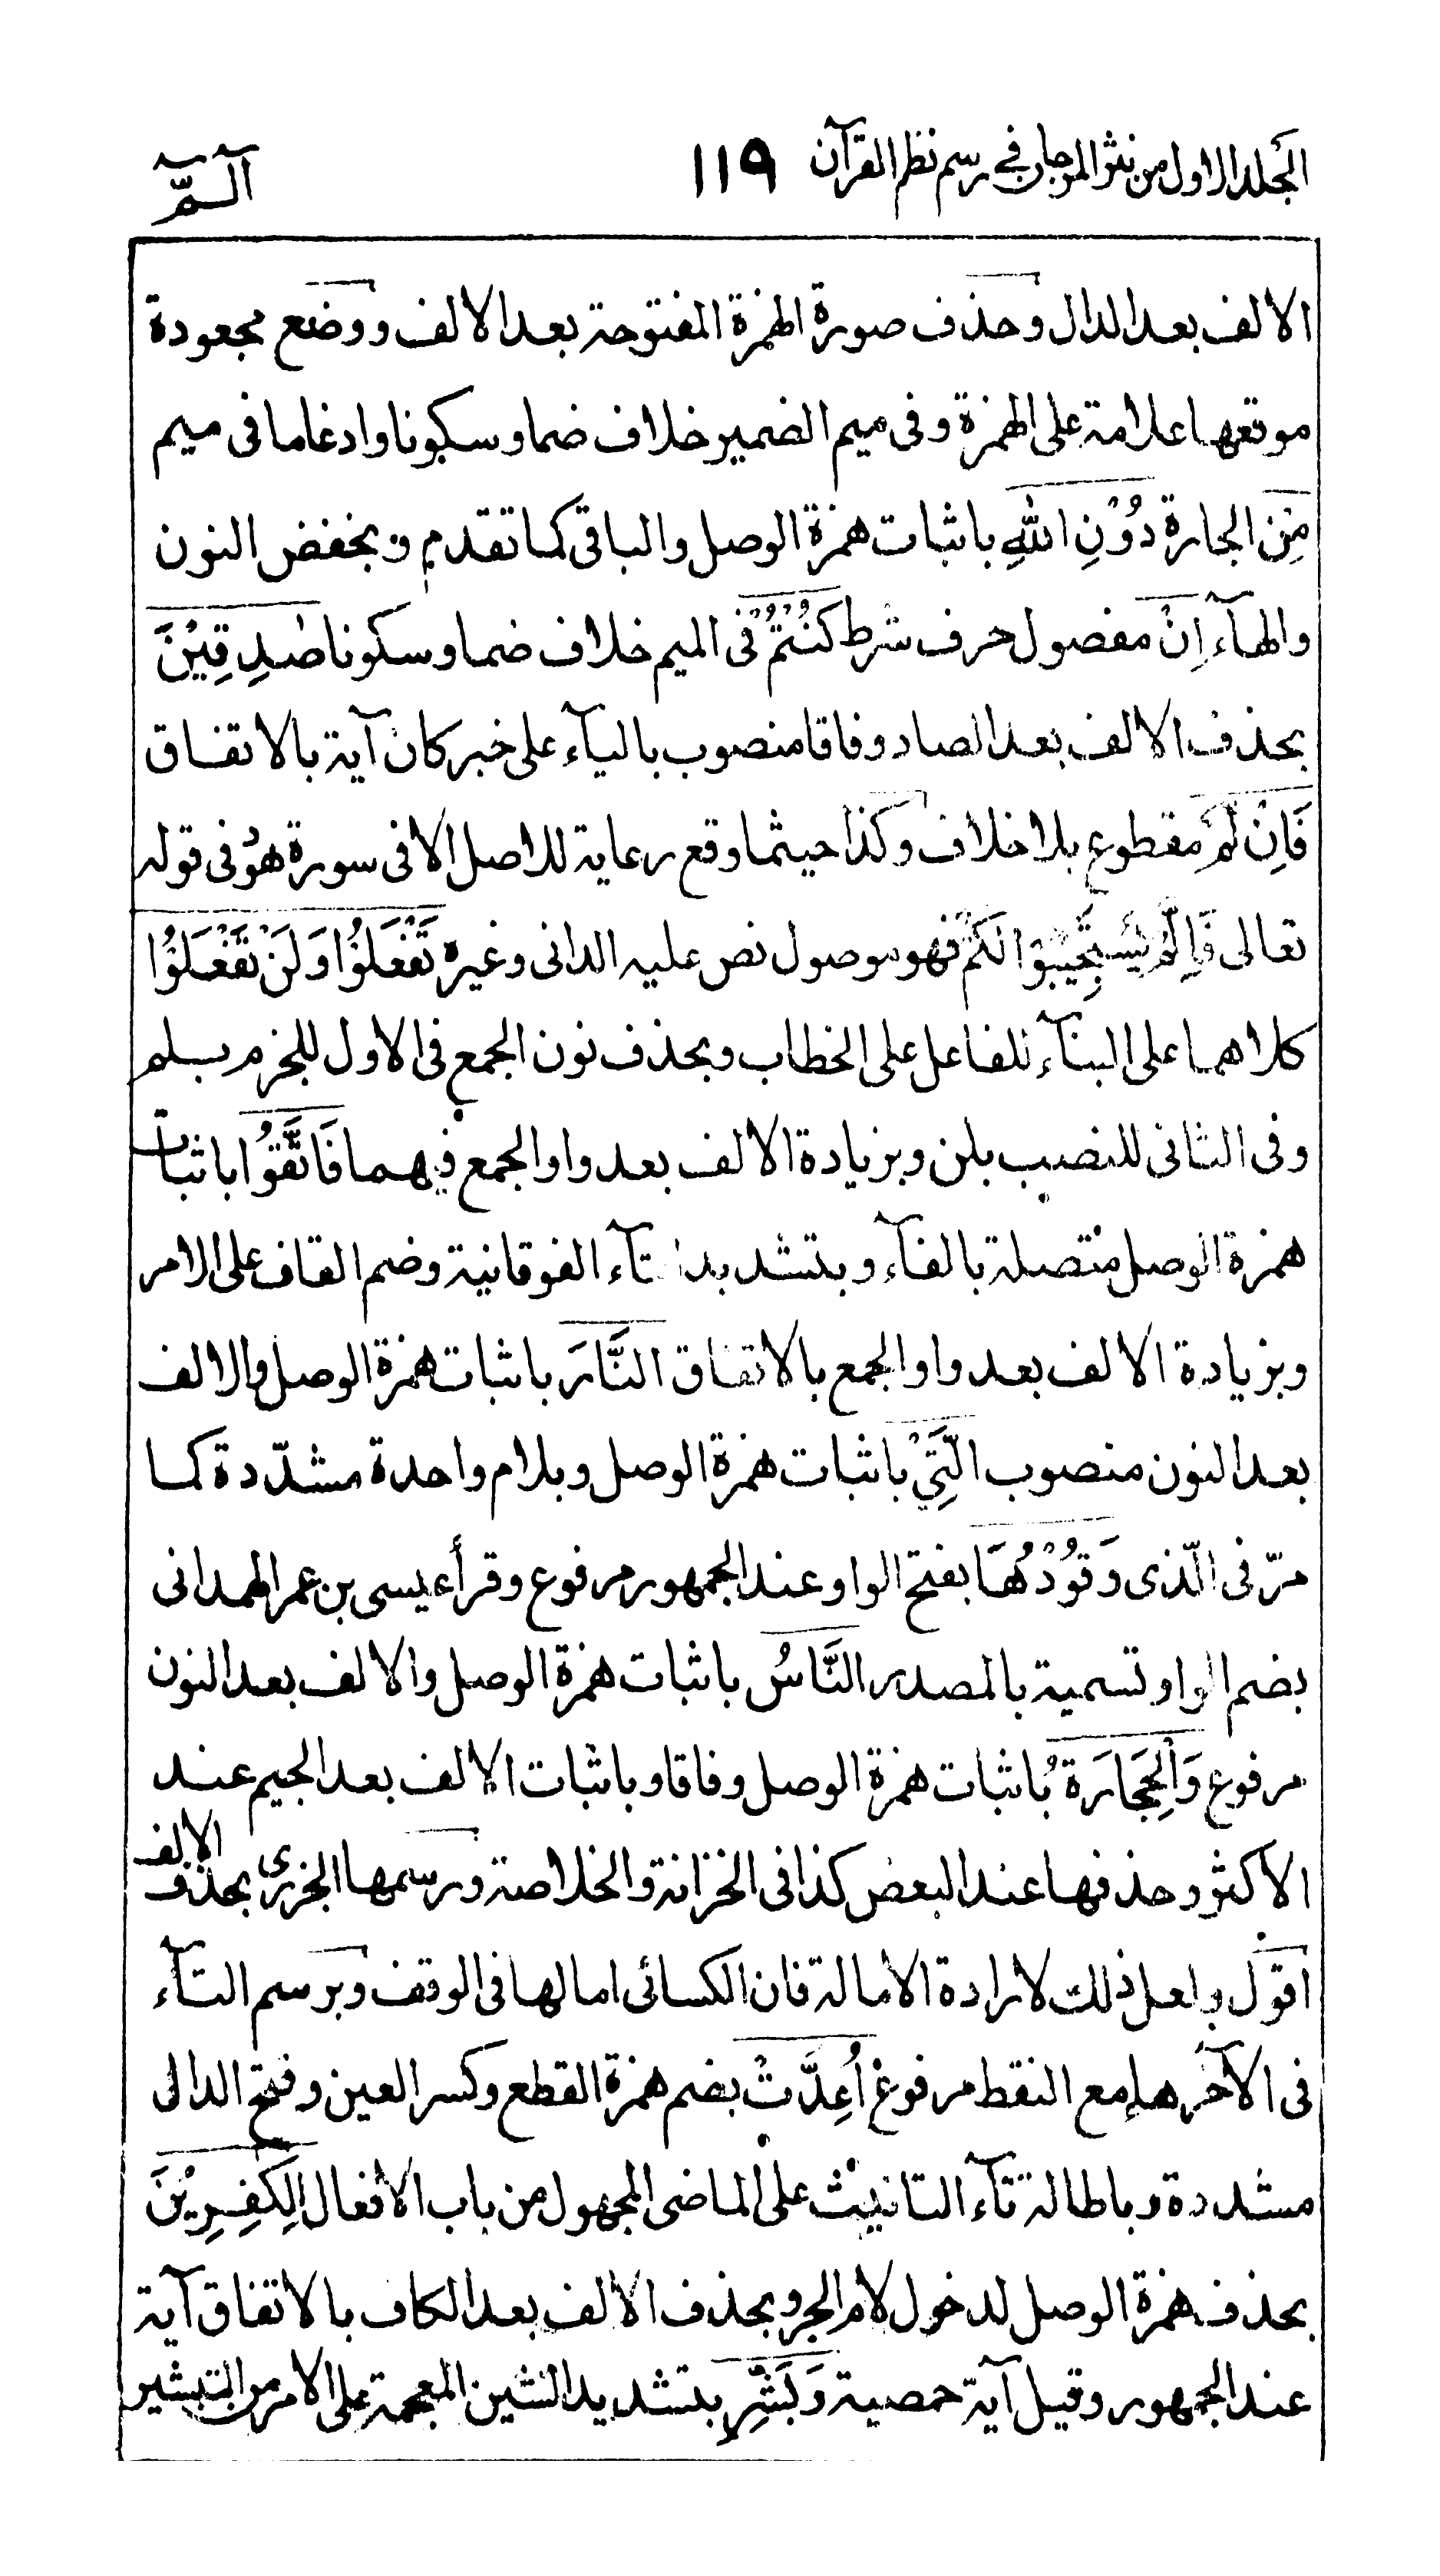 المجلد الاول من نثر المرجان فے رسم نظم القرآن ١١٩ آلـمّٓ
الالف بعد الدال وحذف صورة الهمزة المفتوحة بعد الالف ووضع مجعودة
موقعها علامة على الهمزة وفى ميم الضمير خلاف ضما وسكونا وادغاما فى ميم
مِنْ الجارة دُوْنِ اللّٰهِ باثبات همزة الوصل والباقى كما تقدم وبخفض النون
والهآء اِنْ مفصول حرف شرط كُنْتُمْ فى الميم خلاف ضما وسكونا صٰدِقِيْنَ
بحذف الالف بعد الصاد وفاقا منصوب باليآء على خبر كان آية بالاتفاق
فَاِنْ لَّمْ مقطوع بلا خلاف وكذا حيثما وقع رعاية للاصل الا فى سورة هوْد فى قوله
تعالى فَاِلَّمْ يَسْتَجِيْبُوْا لَكُمْ فهو موصول نص عليه الدانى وغيره تَفْعَلُوْا وَلَنْ تَفْعَلُوْا
كلاهما على البنآء للفاعل على الخطاب وبحذف نون الجمع فى الاول للجزم بلم
وفى الثانى للنصب بلن وبزيادة الالف بعد واو الجمع فيهما فَاتَّقُوا باثبات
همزة الوصل متصلة بالفآء وبتشديد التآء الفوقانية وضم القاف على الامر
وبزيادة الالف بعد واو الجمع بالاتفاق النَّارَ باثبات همزة الوصل والالف
بعد النون منصوب الَّتِيْ باثبات همزة الوصل وبلام واحدة مشدّدة كما
مرّ فى الّذى وَقُوْدُهَا بفتح الواو عند الجمهور مرفوع وقرأ عيسى بن عمر الهمدانى
بضم الواو تسمية بالمصدر النَّاسُ باثبات همزة الوصل والالف بعد النون
مرفوع وَالْحِجَارَةُ باثبات همزة الوصل وفاقا وباثبات الالف بعد الجيم عند
الاكثر وحذفها عند البعض كذا فى الخزانة والخلاصة ورسمها الجزرى بحذف الالف
اقول ولعل ذلك لارادة الامالة فان الكسائى امالها فى الوقف وبرسم التآء
فى الآخر هاء مع النقط مرفوع اُعِدَّتْ بضم همزة القطع وكسر العين وفتح الدال
مشددة وباطالة تآء التانيث على الماضى المجهول من باب الافعال لِلْكٰفِرِيْنَ
بحذف همزة الوصل لدخول لام الجر وبحذف الالف بعد الكاف بالاتفاق آية
عند الجمهور وقيل آية حمصية وَبَشِّرِ بتشديد الشين المعجمة على الامر من التبشير